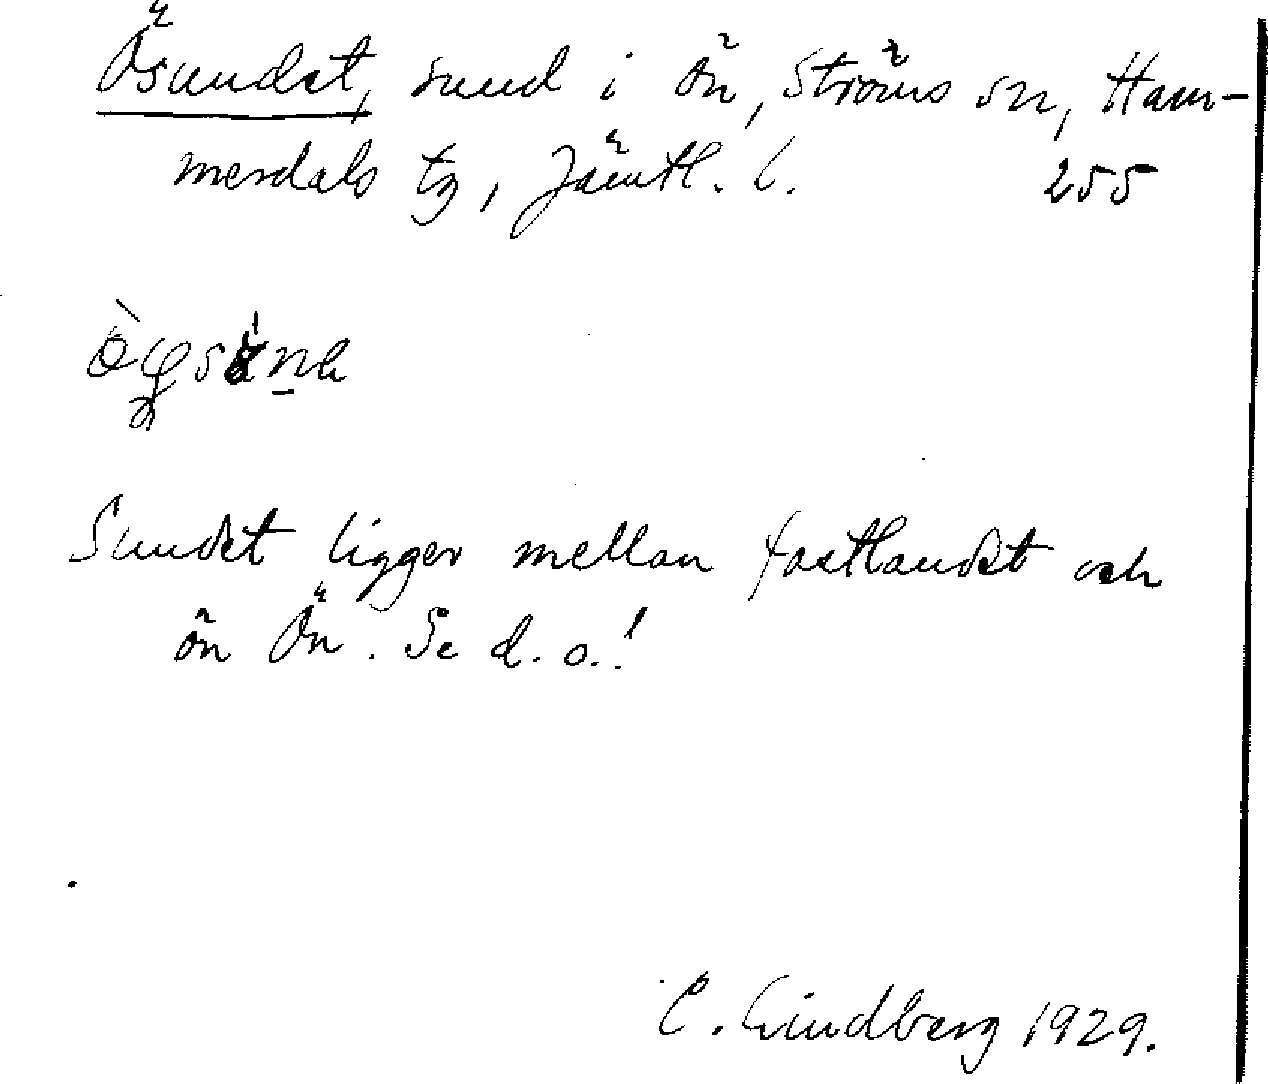 Ösundet, sund i Ön, Ströms sn, Ham-
merdals tg, Jämtl. l. 255
Sundet ligger mellan fastlandet och
ön Ön. Se d. o.!
C. Lindberg 1929.